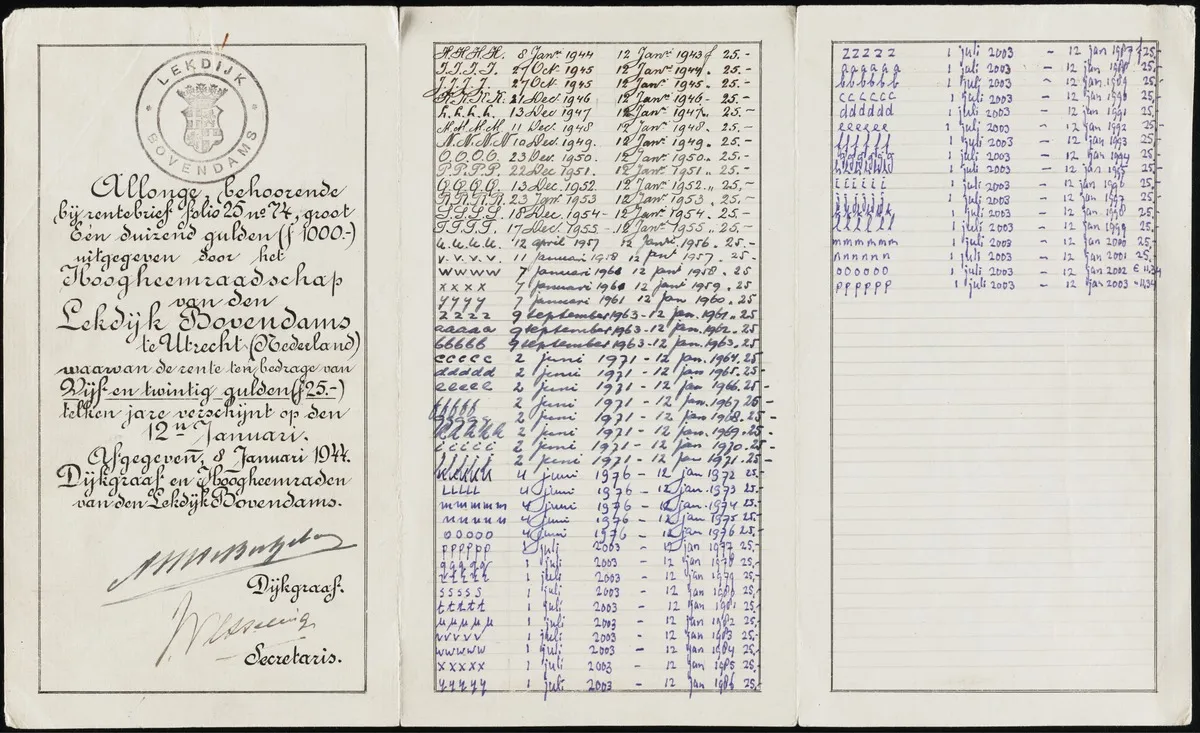 LEKDIJK
BOVENDAMS
Allonge, behoorende
bij rentebrief folio 25 no 74, groot
Eén duizend gulden (f 1000.-)
uitgegeven door het
Hoogheemraadschap
van den
Lekdijk Bovendams
te Utrecht (Nederland)
waarvan de rente ten bedrage van
Vijf en twintig gulden (f 25.-)
telken jare verschijnt op den
12n Januari.
Afgegeven, 8 Januari 1944.
Dijkgraaf en Hoogheemraden
van den Lekdijk Bovendams.
Dijkgraaf.
Secretaris.
H.H.H.H. 8 Janr. 1944 12 Janr. 1943 f 25.-
I.I.I.I. 27 Oct. 1945 12 Janr. 1944 „ 25.-
J.J.J.J. 27 Oct. 1945 12 Janr. 1945 „ 25.-
K.K.K.K. 21 Dec. 1946 12 Janr. 1946 - 25.-
L.L.L.L. 13 Dec. 1947 12 Janr. 1947 „ 25.-
M.M.M.M. 11 Dec. 1948 12 Janr. 1948 „ 25.-
N.N.N.N. 10 Dec. 1949. 12 Janr. 1949. 25.-
O.O.O.O. 23 Dec. 1950. 12 Janr. 1950. 25.-
P.P.P.P. 22 Dec. 1951. 12 Janr. 1951 „ 25.-
Q.Q.Q.Q. 13 Dec. 1952 12 Janr. 1952 „ 25.-
R.R.R.R. 23 Janr. 1953 12 Janr. 1953 . 25.-
S.S.S.S. 18 Dec. 1954 - 12 Janr. 1954. 25.-
T.T.T.T. 17 Dec. 1955 - 12 Janr. 1955 „ 25.-
u.u.u.u. 12 april 1957 12 Janr. 1956 - 25.-
v.v.v.v. 11 januari 1958 12 janr. 1957 . 25.-
wwww 7 januari 1961 12 janr 1958 . 25
xxxx 7 januari 1961 12 janr 1959 . 25
yyyy 7 januari 1961 12 jan 1960 . 25
zzzz 9 september 1963 - 12 jan. 1961 „ 25
aaaaa 9 september 1963 - 12 jan. 1962 „ 25
bbbbb 9 september 1963 - 12 jan. 1963 „ 25
ccccc 2 juni 1971 - 12 jan. 1964 . 25-
ddddd 2 juni 1971 - 12 jan. 1965 . 25-
eeeee 2 juni 1971 - 12 jan. 1966 . 25-
fffff 2 juni 1971 - 12 jan. 1967 . 25-
ggggg 2 juni 1971 - 12 jan. 1968 . 25-
hhhhh 2 juni 1971 - 12 jan. 1969 . 25-
iiiii 2 juni 1971 - 12 jan. 1970 . 25-
jjjjj 2 juni 1971 - 12 jan. 1971 . 25-
kkkkk 4 juni 1976 - 12 jan 1972 25.-
LLLLL 4 juni 1976 - 12 jan 1973 25.-
mmmmm 4 juni 1976 - 12 jan. 1974 25.-
nnnnn 4 juni 1976 - 12 jan 1975 25.-
ooooo 4 juni 1976 - 12 jan 1976 25.-
ppppp 1 juli 2003 - 12 jan 1977 25,-
qqqqq 1 juli 2003 - 12 jan 1978 25,-
rrrrr 1 juli 2003 - 12 jan 1979 25,-
sssss 1 juli 2003 - 12 jan 1980 25,-
ttttt 1 juli 2003 - 12 jan 1981 25,-
uuuuu 1 juli 2003 - 12 jan 1982 25,-
vvvvv 1 juli 2003 - 12 jan 1983 25,-
wwwww 1 juli 2003 - 12 jan 1984 25,-
xxxxx 1 juli 2003 - 12 jan 1985 25,-
yyyyy 1 juli 2003 - 12 jan 1986 25,-
zzzzz 1 juli 2003 - 12 jan 1987 f 25,-
aaaaaa 1 juli 2003 - 12 jan 1988 25,-
bbbbbb 1 juli 2003 - 12 jan 1989 25,-
cccccc 1 juli 2003 - 12 jan 1990 25,-
dddddd 1 juli 2003 - 12 jan 1991 25,-
eeeeee 1 juli 2003 - 12 jan 1992 25,-
ffffff 1 juli 2003 - 12 jan 1993 25,-
gggggg 1 juli 2003 - 12 jan 1994 25,-
hhhhhh 1 juli 2003 - 12 jan 1995 25,-
iiiiii 1 juli 2003 - 12 jan 1996 25,-
jjjjjj 1 juli 2003 - 12 jan 1997 25,-
kkkkkk 1 juli 2003 - 12 jan 1998 25,-
llllll 1 juli 2003 - 12 jan 1999 25,-
mmmmmm 1 juli 2003 - 12 jan 2000 25,-
nnnnnn 1 juli 2003 - 12 jan 2001 25,-
oooooo 1 juli 2003 - 12 jan 2002 € 11,34
pppppp 1 juli 2003 - 12 jan 2003 - 11,34